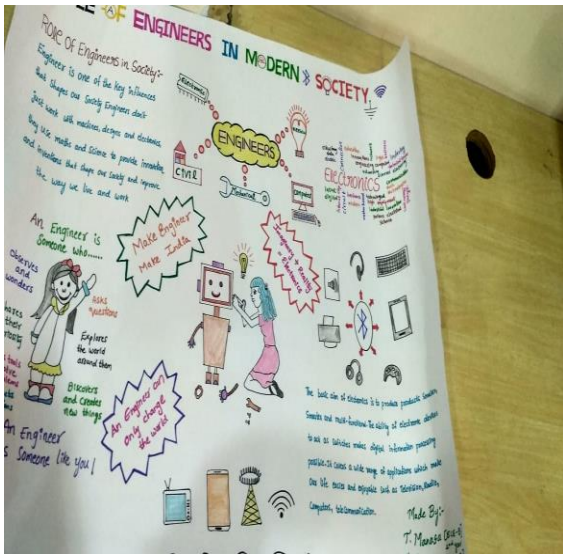 OF ENGINEERS IN MODERN SOCIETY
Role of Engineers in Society:-
Engineer is one of the key influences
that shapes our Society Engineers don't
just work with machines, designs and electronics,
they use maths and Science to provide innovation
and inventions that shape our Society and improve
the way we live and work
Electronics
ENGINEERS
CIVIL
Mechanical
computer
Electronics
Make Engineer
Make India
Imaginary → Reality
= Electronics
An Engineer is
Someone who.....
Observes
and
wonders
Asks
questions
their
Explores
the world
around them
Discovers
and creates
new things
An Engineer
Someone like you!
An Engineer can
only change
the world
The basic aim of electronics is to produce products Smaller,
Smarter and multi-functional. The ability of electronic devices
to act as switches makes digital information processing
possible. It covers a wide range of applications which make
our life easier and enjoyable such as Television,
Computers, telecommunication.
Made By:-
T. Manasa